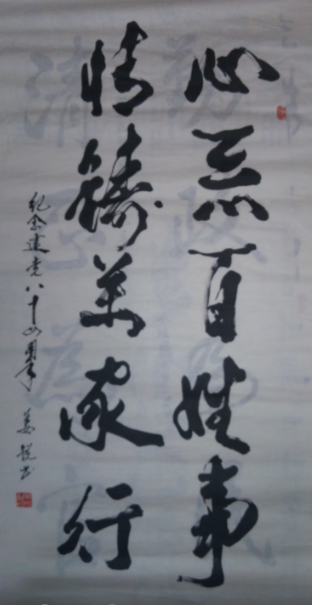 心示百姓事
情铸万家行
纪念建党八十四周年